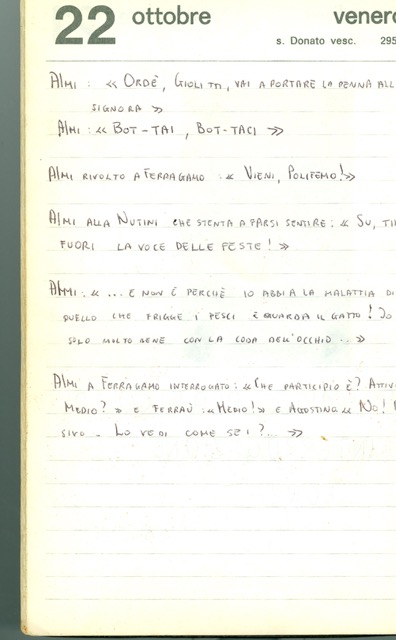 22 ottobre venerd
s. Donato vesc. 295
Almi : « Ordè, Giolitti, vai a portare la penna all
signora »
Almi : « Bot-tai, Bot-taci »
Almi rivolto a Ferragamo : « Vieni, Polifemo! »
Almi alla Nutini che stenta a farsi sentire : « Su, ti
fuori la voce delle feste ! »
Almi : « ... e non è perchè io abbia la malattia di
quello che frigge i pesci e guarda il gatto ! Io
solo molto bene con la coda dell'occhio ... »
Almi a Ferragamo interrogato : « Che participio è? Attiv
Medio? » e Ferraù : « Medio! » e Agostina « No!
sivo . Lo vedi come sei ?... »